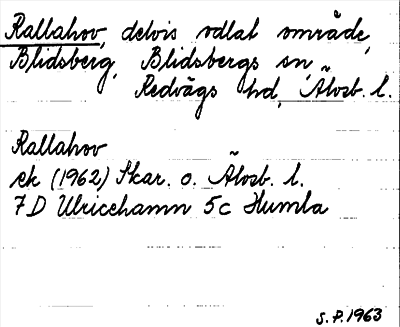 Rallahov, delvis odlat område,
Blidsberg, Blidsbergs sn,
Redvägs hd, Älvsb. l.
Rallahov
ek (1962) Skar. o. Älvsb. l.
7D Ulricehamn 5c Humla
S.P. 1963